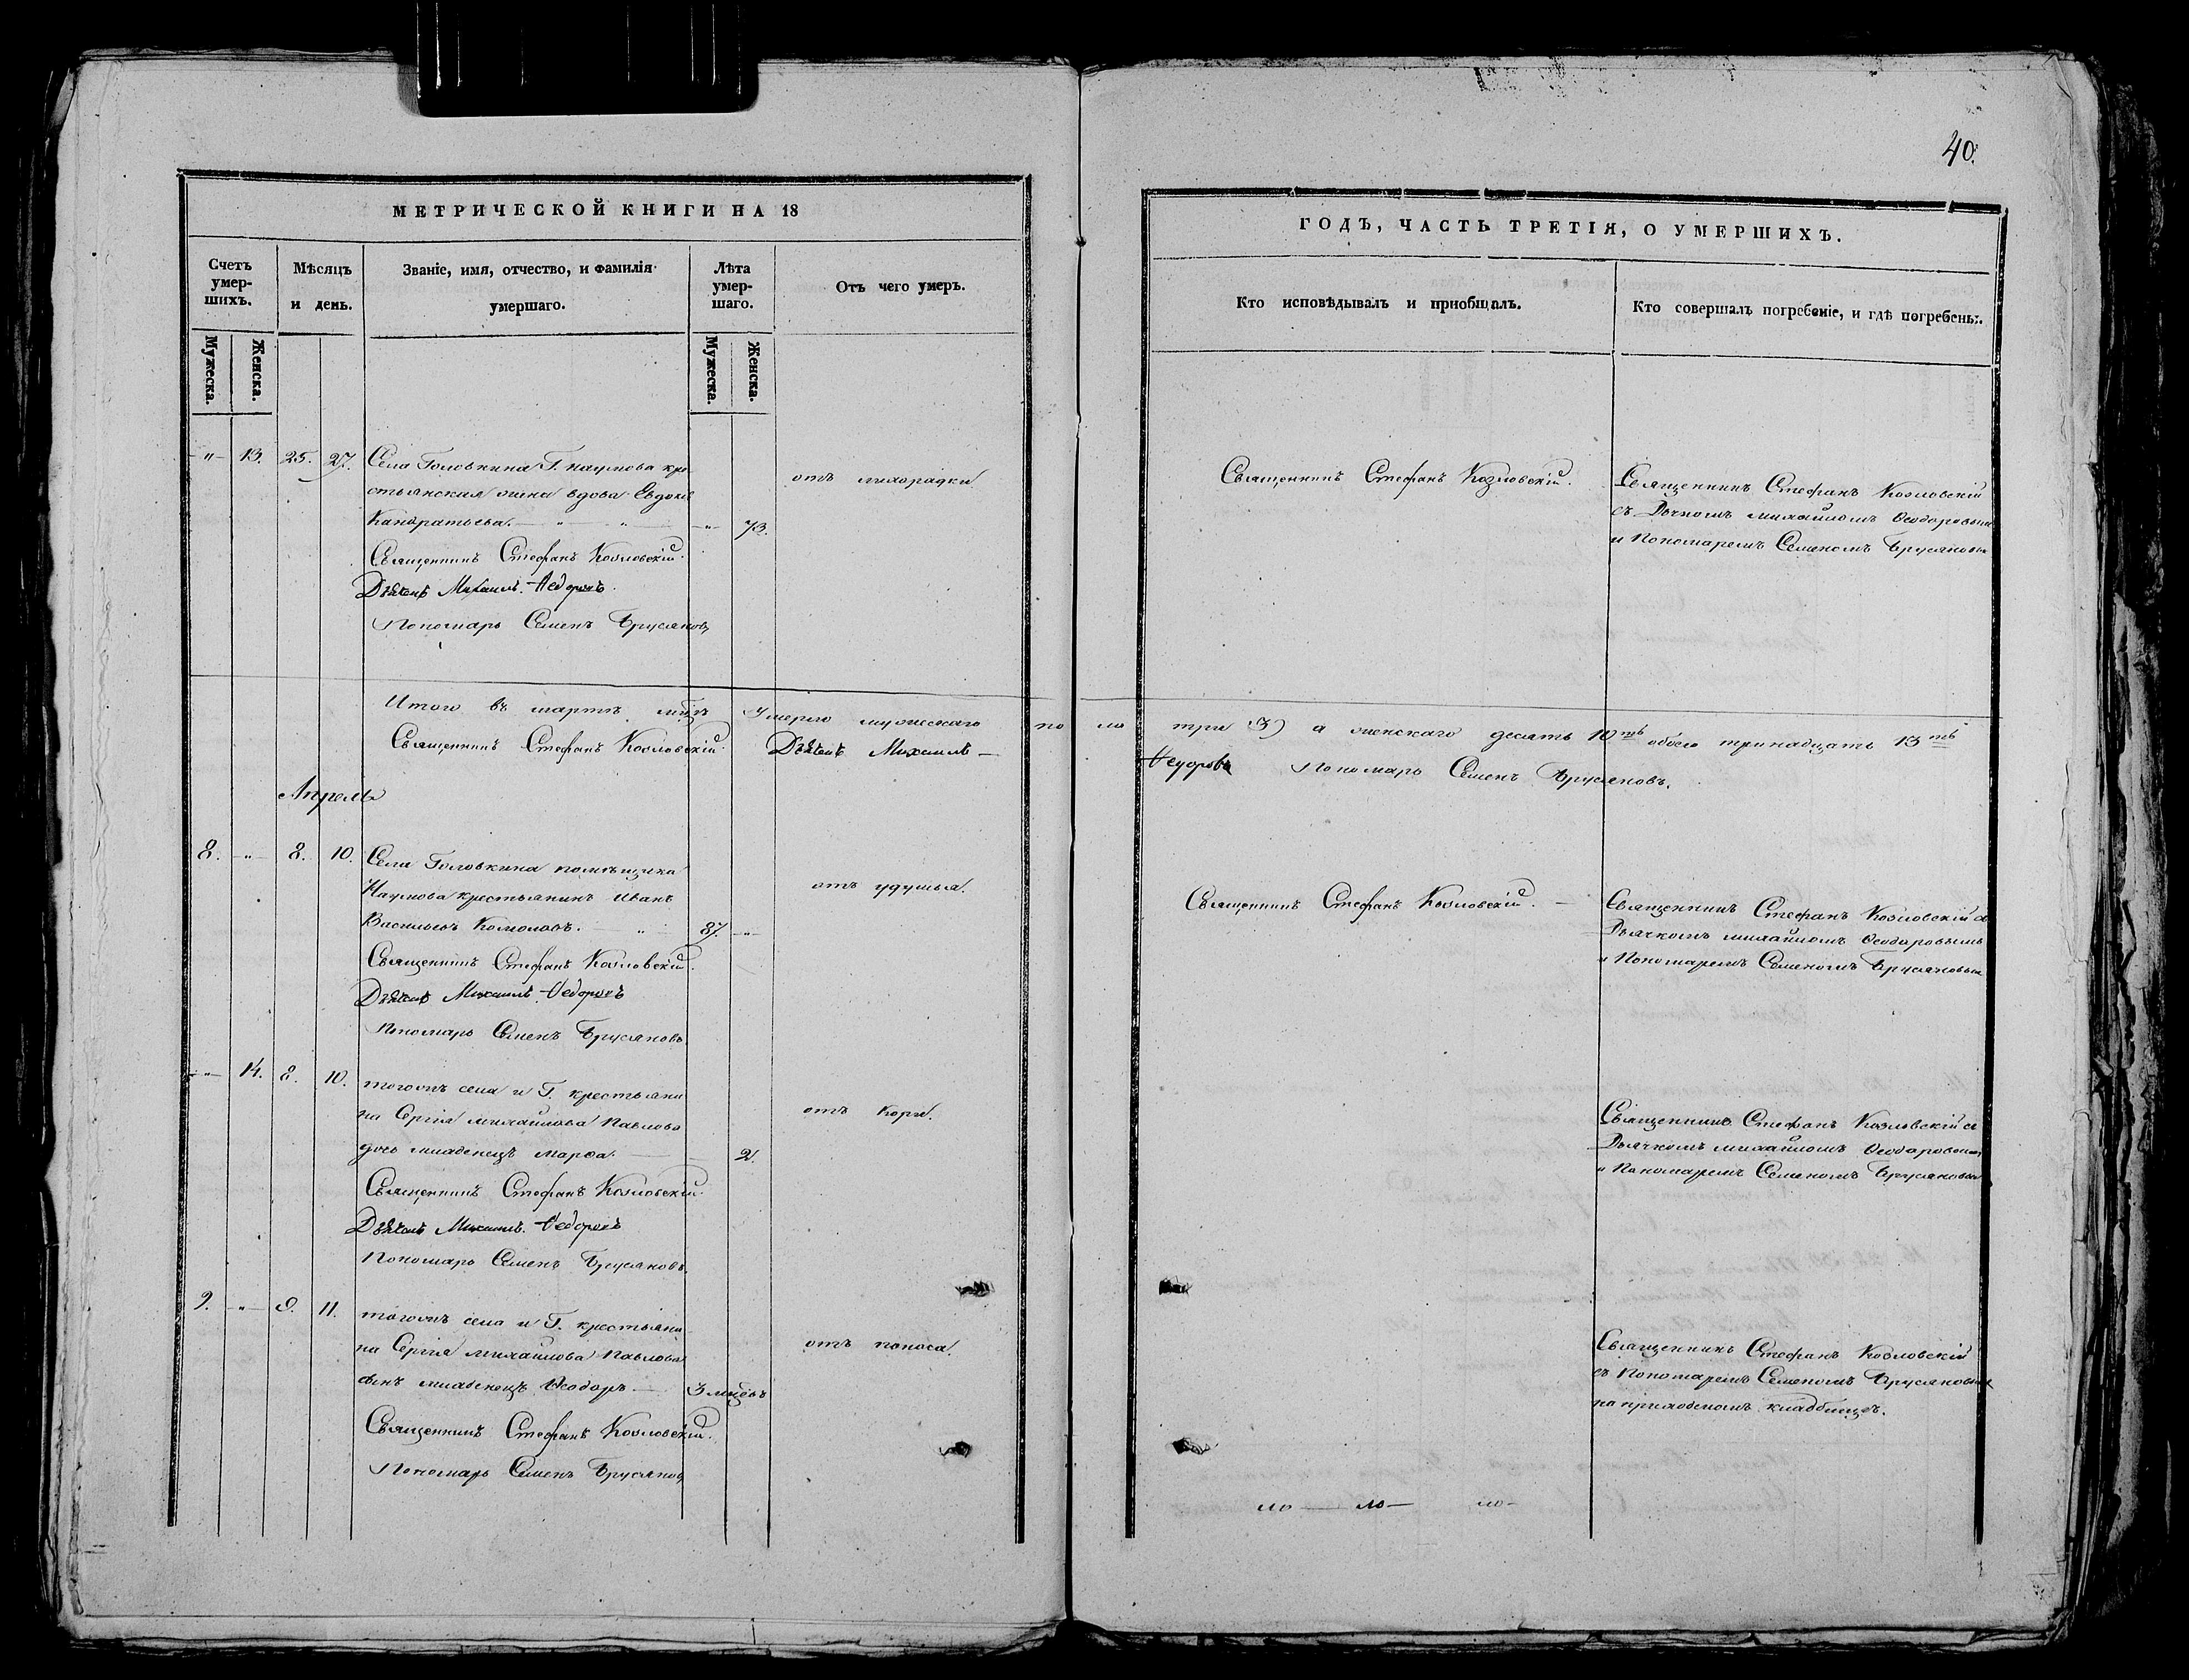 40.
МЕТРИЧЕСКОЙ КНИГИ НА 18
Счетъ умер-шихъ.
Мѣсяцъ и день.
Званіе, имя, отчество, и фамилія умершаго.
Лѣта умер-шаго.
Отъ чего умеръ.
Мужеска.
Женска.
Мужеска.
Женска.
ГОДЪ, ЧАСТЬ ТРЕТІЯ, О УМЕРШИХЪ.
Кто исповѣдывалъ и приобщалъ.
Кто совершалъ погребеніе, и гдѣ погребены.
-"- 13. 25. 27. Села Головкина Г. наумова кре
стьянская жена вдова Евдокія
Кандратьева. — " — " — -"- 73.
отъ лихорадки
Священникъ Стефанъ Козловскій.
Священникъ Стефанъ Козловскій
съ Дьчкомъ михаиломъ Ѳеодаровым
и Пономаремъ Семеномъ Брусяновы
Священникъ Стефанъ Козловскій.
Михаилъ Ѳедоровъ
Пономарь Семенъ Брусяновъ
Итого въ мартѣ мцѣ Умерло мужескаго по ло три (3) а женскаго десять 10ть обоего тринадцать 13ть
Священникъ Стефанъ Козловскій. Михаилъ — Ѳедоровъ Пономарь Семенъ Брусяновъ.
Апрель
8. -"- 8. 10. Села Головкина помѣщика
Наумова крестьянинъ Иванъ
Васильевъ Комоловъ. — " 87. -"-
отъ удушья.
Священникъ Стефанъ Козловскій. —
Священникъ Стефанъ Козловскій съ
Дьячкомъ михаиломъ Ѳеодаровымъ
и Пономаремъ Семеномъ Брусяновым
Священникъ Стефанъ Козловскій.
Михаилъ Ѳедоровъ
Пономарь Семенъ Брусяновъ
-"- 14. 8. 10. тогожъ села и Г. крестьяни
на Сергія михаилова Павлова
дочь младенецъ марѳа. — 2.
отъ кори.
Священникъ Стефанъ Козловскій съ
Дьячкомъ михаиломъ Ѳеодаровым
и Пономаремъ Семеномъ Брусяновым
Священникъ Стефанъ Козловскій.
Михаилъ Ѳедоровъ
Пономарь Семенъ Брусяновъ.
9. -"- 9. 11. тогожъ села и Г. крестьяни
на Сергія михаилова Павлова
сынъ младенецъ Ѳеодоръ — 3 мцовъ
отъ поноса.
Священникъ Стефанъ Козловскій
съ Пономаремъ Семеномъ Брусяновым
на приходскомъ кладбищѣ.
Священникъ Стефанъ Козловскій.
Пономарь Семенъ Брусяновъ
ло — ло — ло —